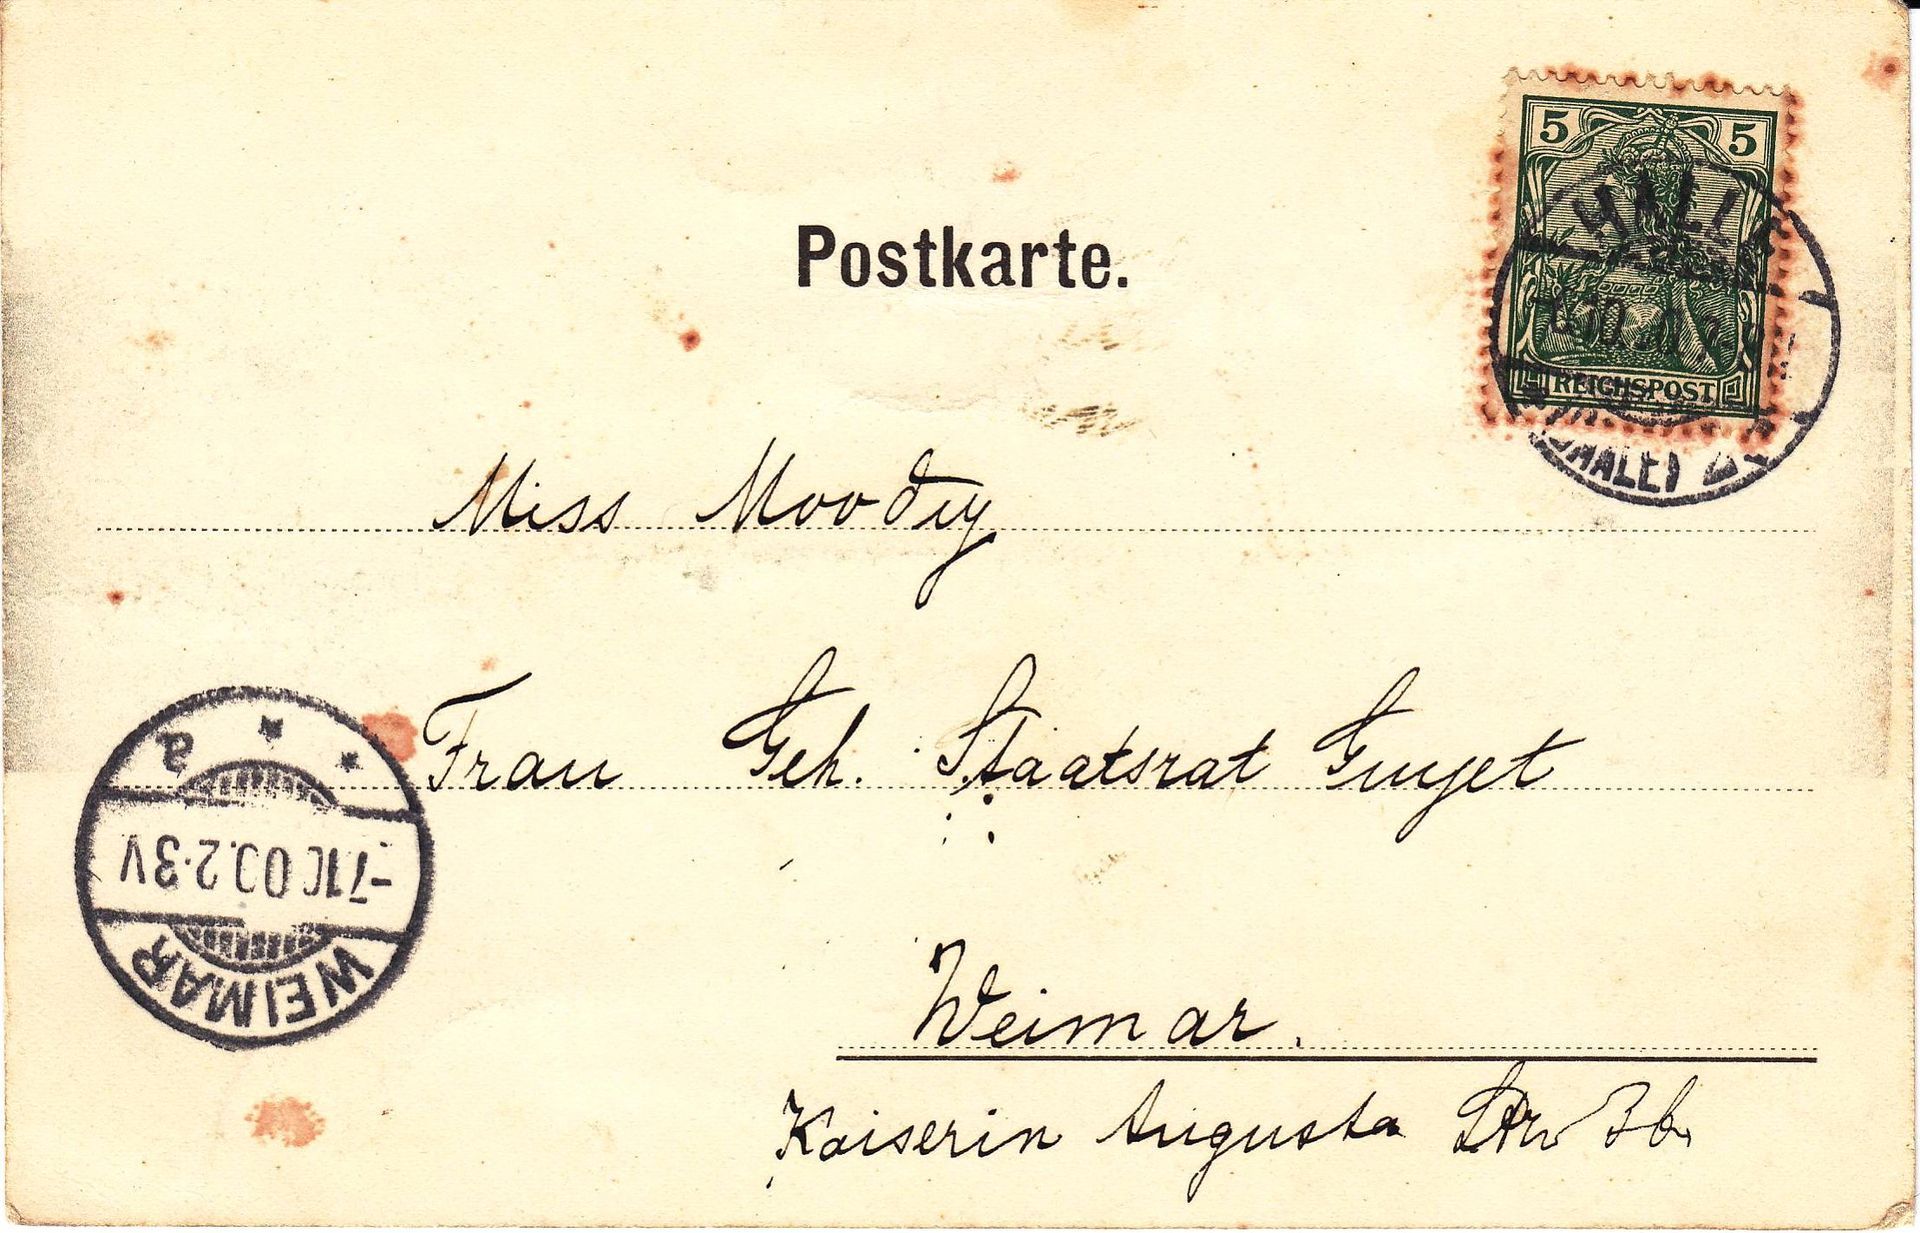 5 5
HALLE
REICHSPOST
(SAALE)
Postkarte.
Miss Moodey
Frau Geh. Staatsrat Guyet
Weimar.
Kaiserin Augusta Str 3b.
WEIMAR
-7.10.00.2-3V
a